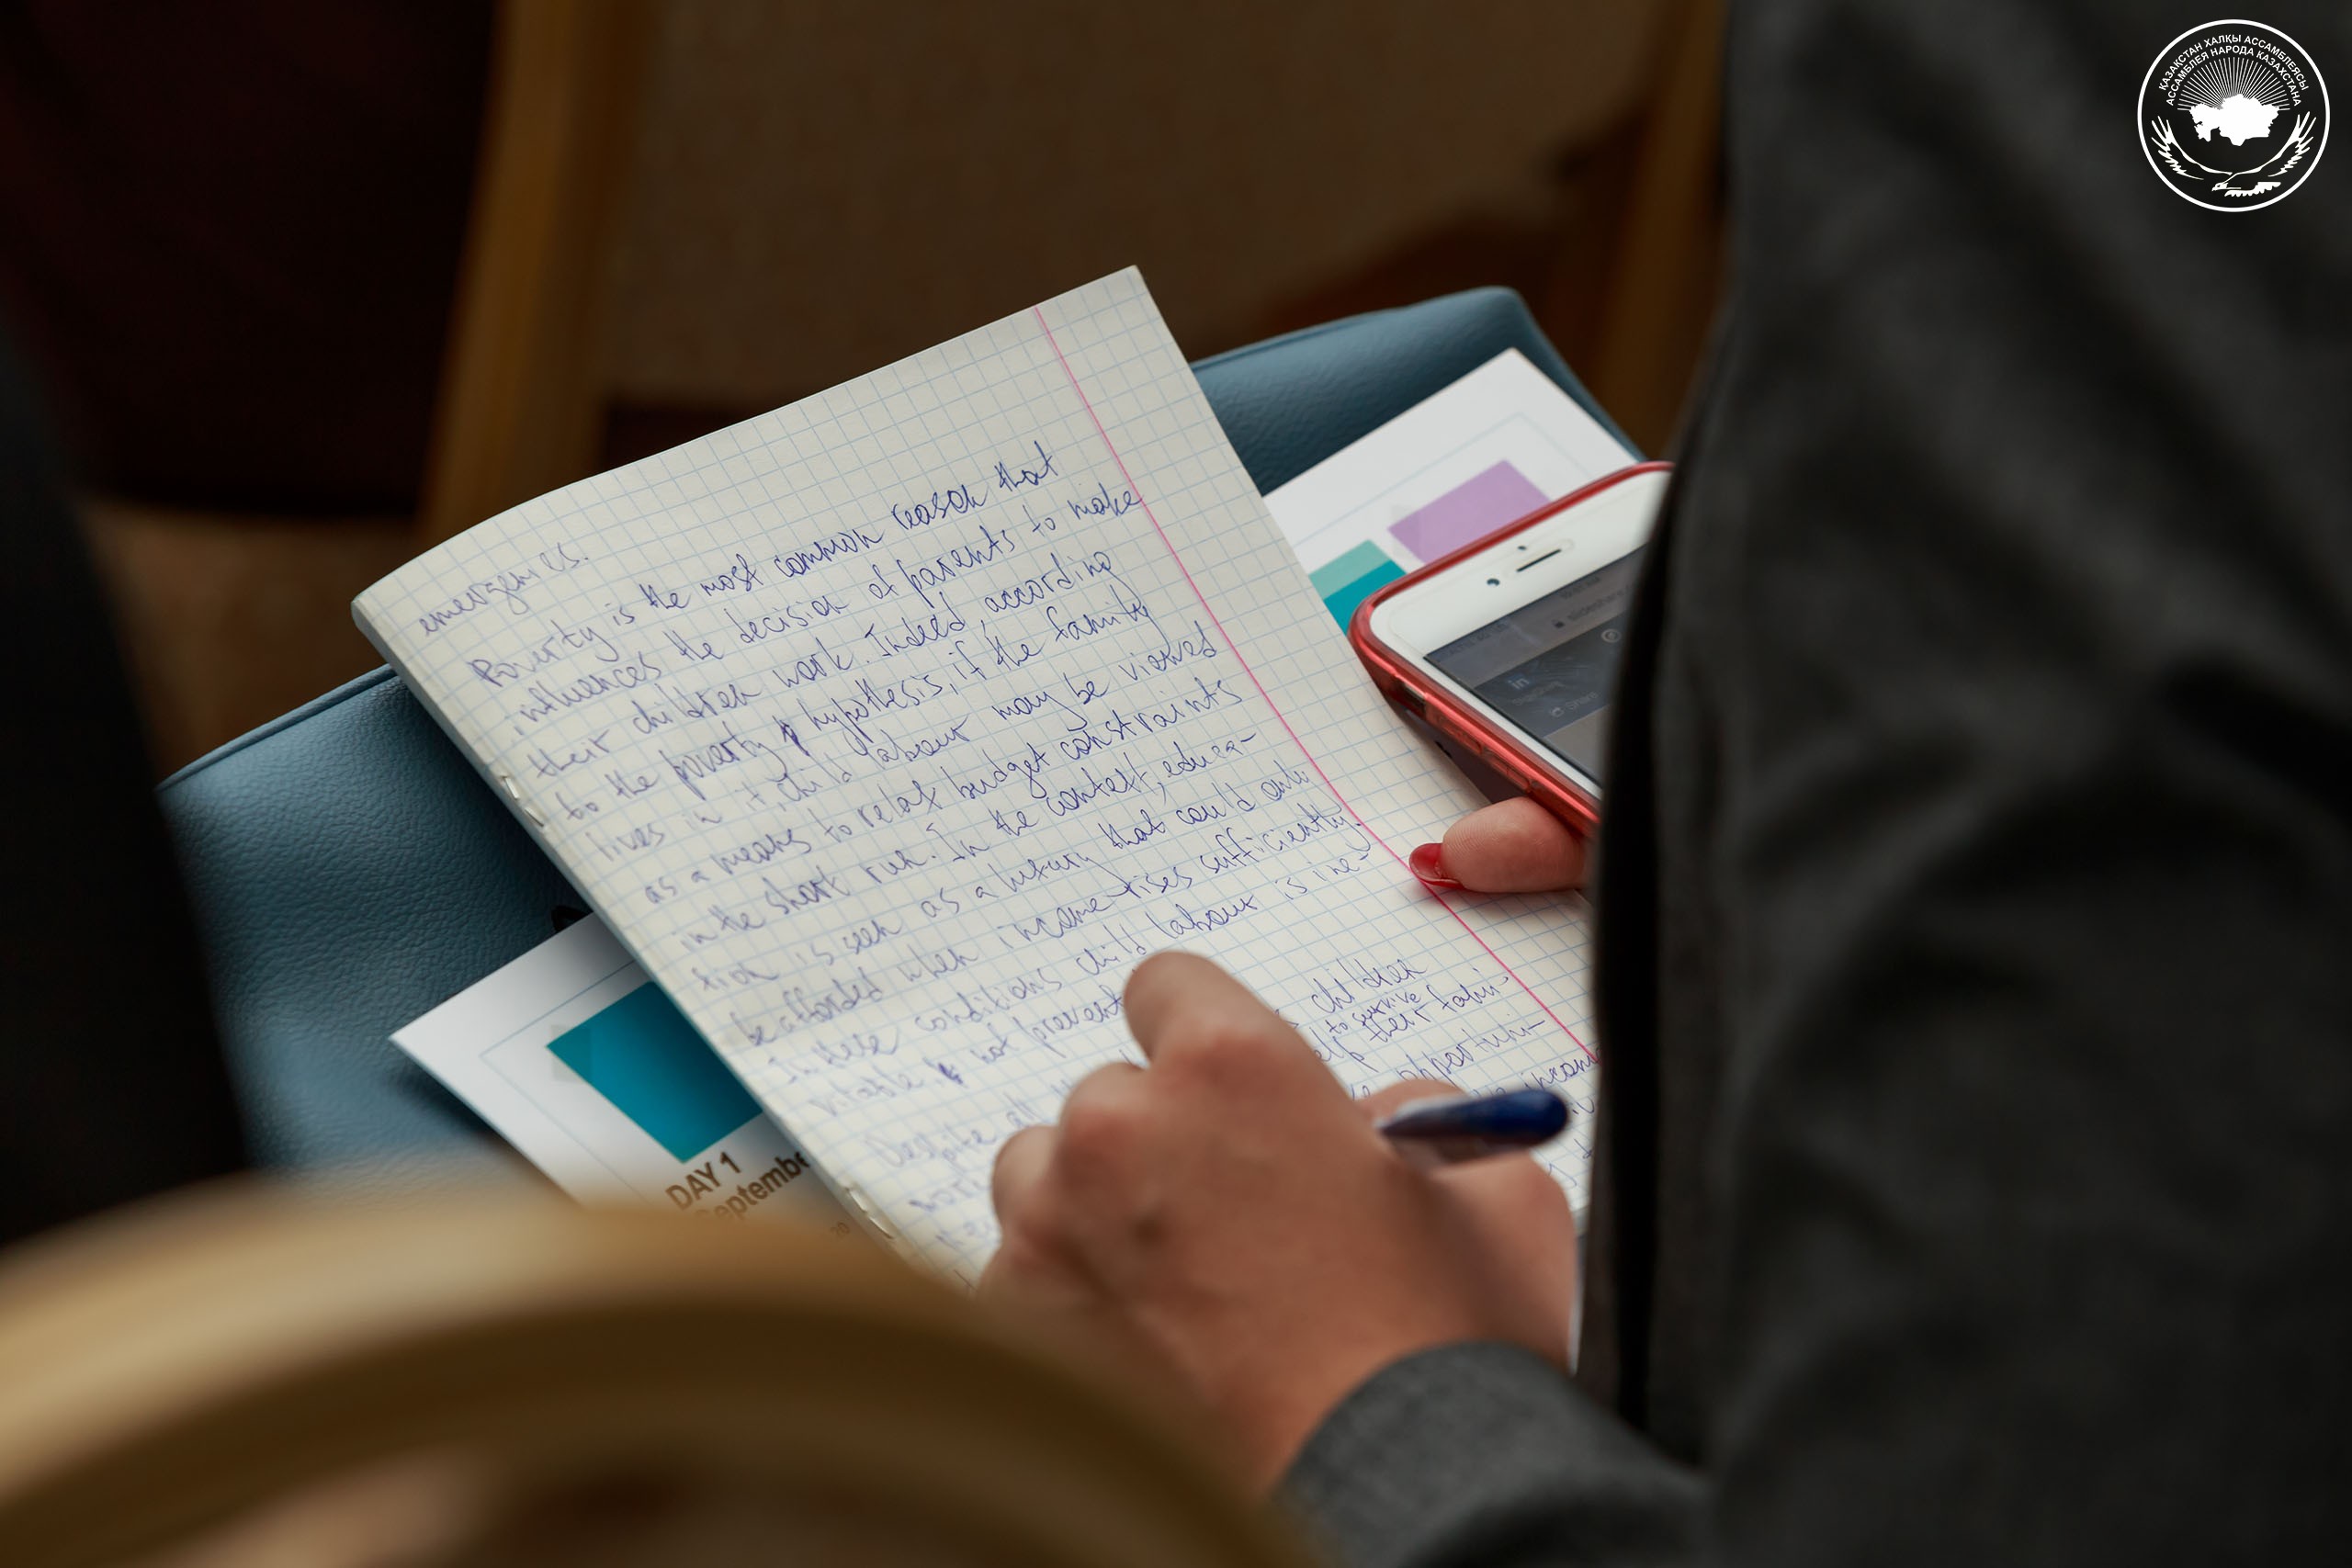 ҚАЗАҚСТАН ХАЛҚЫ АССАМБЛЕЯСЫ
АССАМБЛЕЯ НАРОДА КАЗАХСТАНА
Poverty is the most common reason that
influences the decision of parents to make
their children work. Indeed, according
to the poverty hypothesis, if the family
lives in it, child labour may be viewed
as a means to relax budget constraints
in the short run. In the context, educa-
tion is seen as a luxury that could only
be afforded when income rises sufficiently.
In these conditions child labour is ine-
vitable & not prevent
Despite all
children
to survive
help their fami-
opportuni-
income
in
Share
DAY 1
Septembe
20